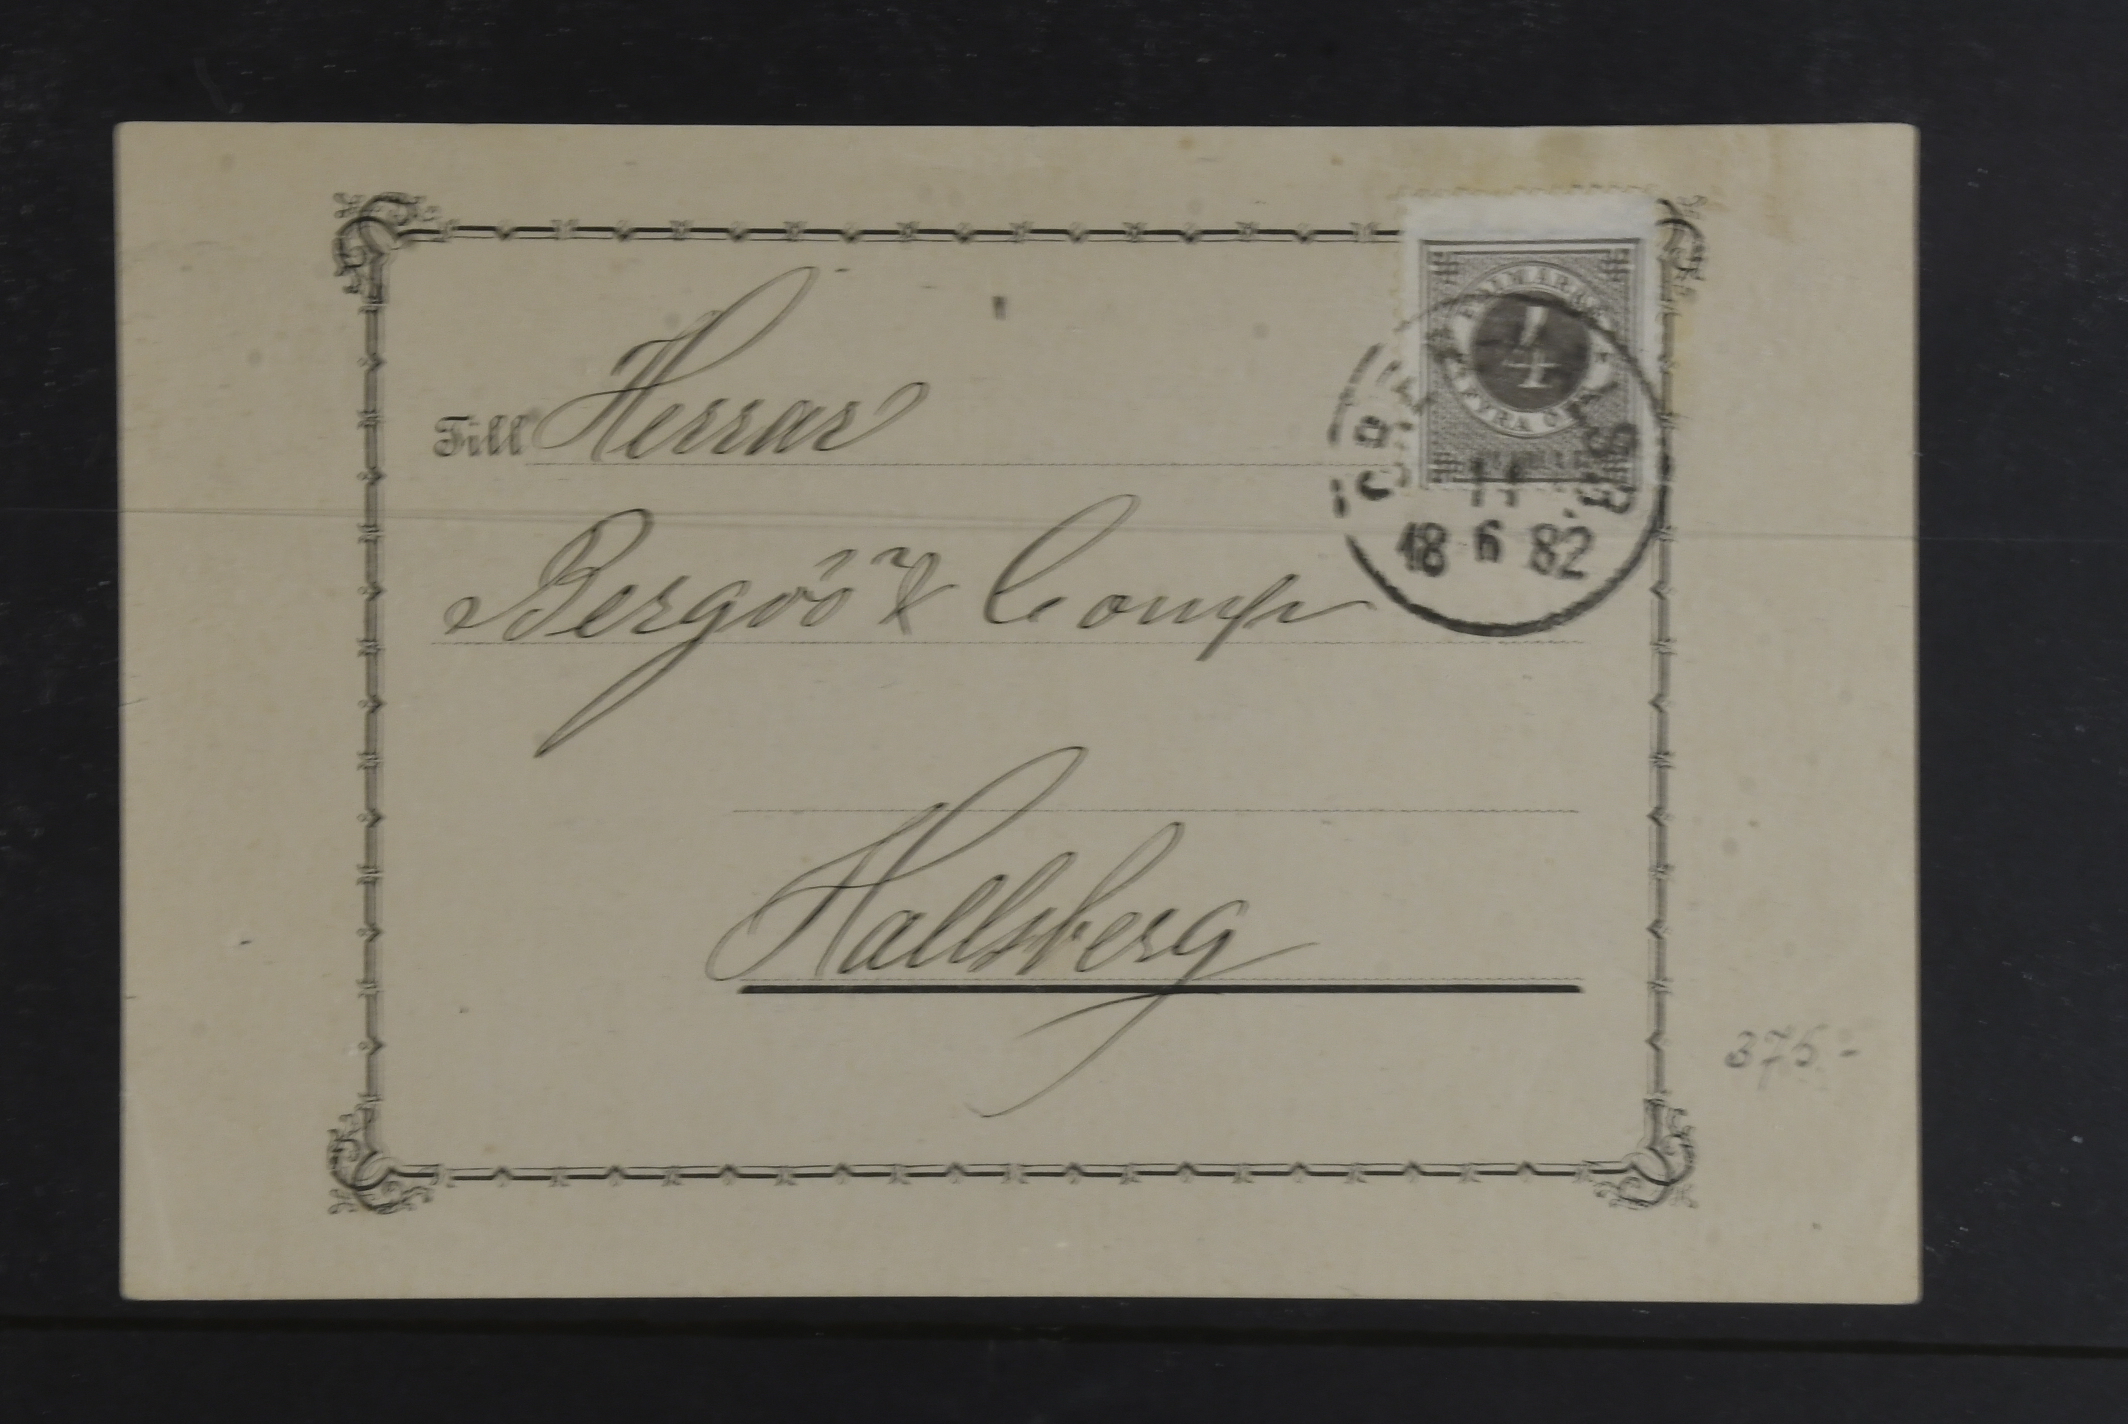 FRIMÄRKE
4
FYRA ÖRE
11
18 6 82
Till Herrar
Bergöö & Comp
Hallsberg
375:-